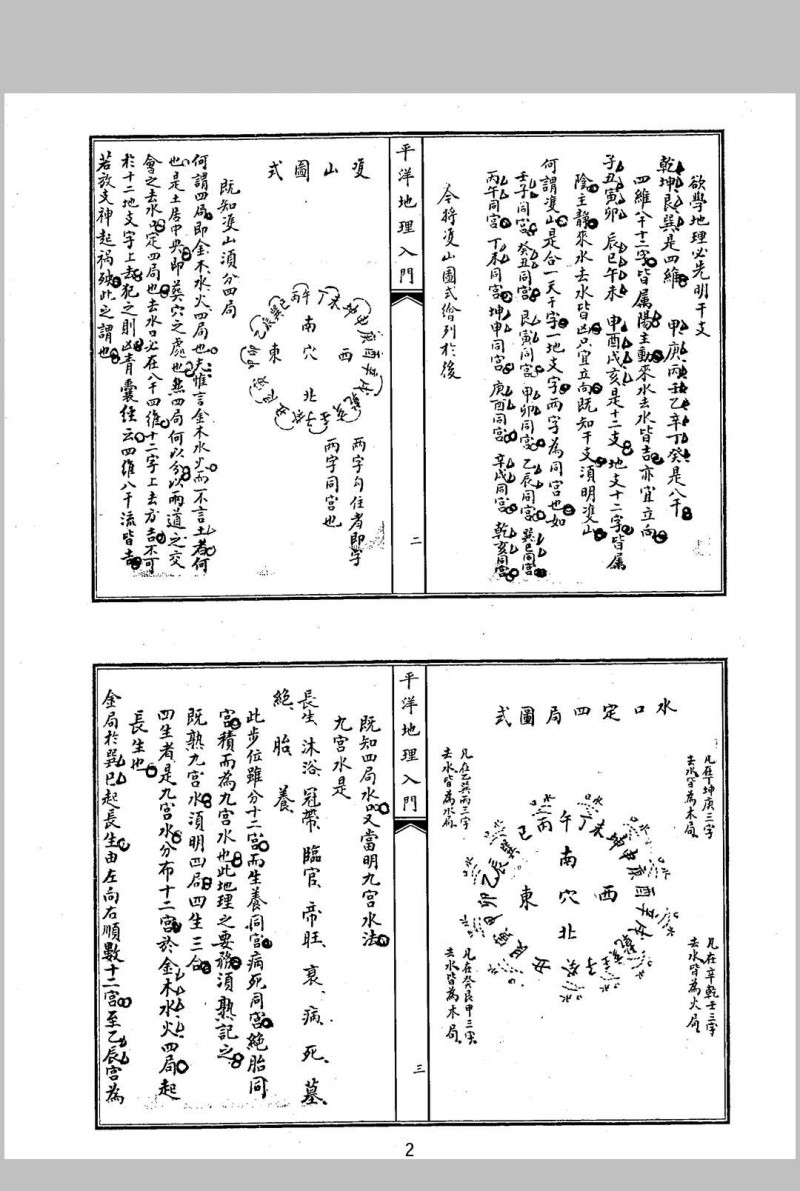 欲學地理必先明干支
乾坤艮巽是四維 甲庚丙壬乙辛丁癸是八干
四維八干十二字皆属陽主動來水去水皆吉亦宜立向
子丑寅卯 辰巳午未 申酉戌亥是十二支 地支十二字皆属
陰主靜來水去水皆凶只宜立向既知干支須明㕠山
何謂㕠山是合一天干字一地支字两字為同宫也如
壬子同宫 癸丑同宫 艮寅同宫 甲卯同宫 乙辰同宫 巽巳同宫
丙午同宫 丁未同宫 坤申同宫 庚酉同宫 辛戌同宫 乾亥同宫
今將㕠山圖式繪列於後
平洋地理入門
二
㕠山圖式
午丁未坤申庚酉辛戌乾亥壬子癸丑
乙辰巽巳丙
南
東 穴 西
北
两字勾住者即字
两字同宫也
既知㕠山須分四局
何謂四局即金木水火四局也夫惟言金木水火而不言土者何
也是土居中央即葬穴之處也然四局何以分以兩道之交
會之去水定四局也去水口必在八干四維十二字上去方吉不可
於十二地支字上去犯之則凶青囊经云四維八干流皆吉
若放支神起祸殃此之謂也
水口定四局圖式
凡在丁坤庚三字
去水皆為木局
凡在乙巽丙三字
去水皆為水局
凡在辛乾壬三字
去水皆為火局
凡在癸艮甲三字
去水皆為木局
巳丙午丁未坤申庚酉辛戌乾
子癸丑艮
甲卯乙辰巽
南
東 穴 西
北
平洋地理入門
三
既知四局水口又當明九宫水法
九宫水是
長生、沐浴、冠帶、臨官、帝旺、衰、病、死、墓、
絶、胎、養
此步位雖分十二宫而生養同宫病死同宫絶胎同
宫積而為九宫水也此地理之要務須熟記之
既熟九宫水須明四局四生三合
四生者是九宫水分布十二宫於金木水火四局起
長生也
金局於巽巳起長生由左向右順數十二宫至乙辰宫為
2